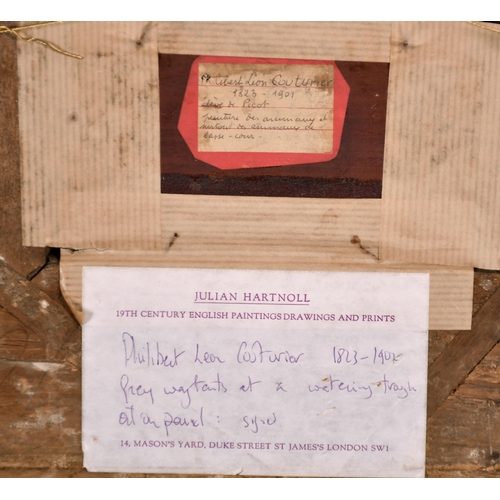 Philibert Léon Couturier
1823 - 1901
élève de Picot
peinture des animaux et
surtout des animaux de
basse-cour.
JULIAN HARTNOLL
19TH CENTURY ENGLISH PAINTINGS DRAWINGS AND PRINTS
Philibert Leon Couturier 1823-190
Grey wagtails at a watering trough
oil on panel: signed
14, MASON'S YARD, DUKE STREET ST JAMES'S LONDON SW1